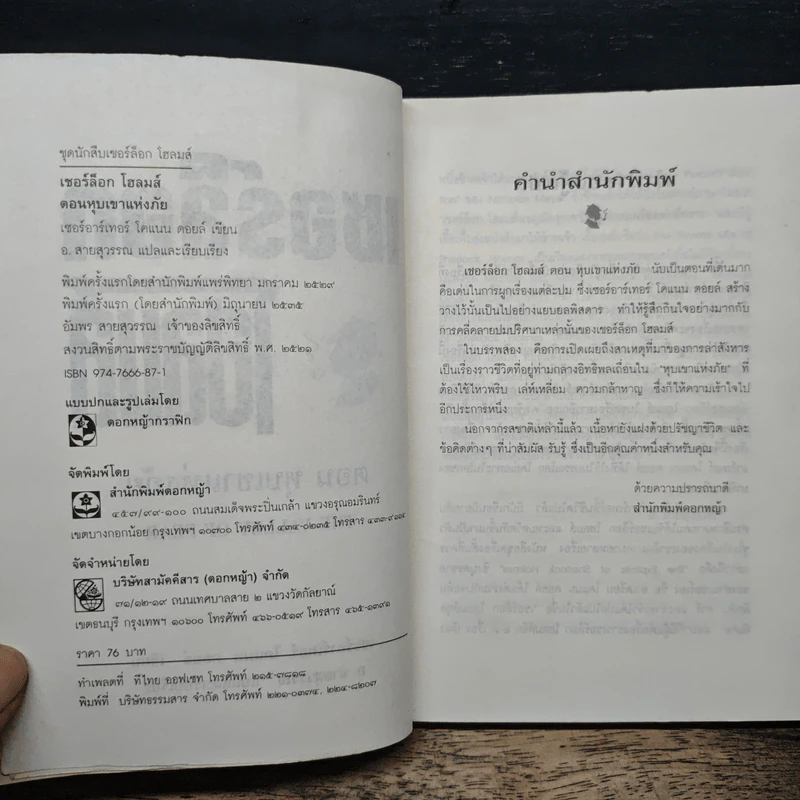 ชุดนักสืบเชอร์ล็อก โฮลมส์
เชอร์ล็อก โฮลมส์
ตอนหุบเขาแห่งภัย
เซอร์อาร์เทอร์ โคแนน ดอยล์ เขียน
อ. สายสุวรรณ แปลและเรียบเรียง
พิมพ์ครั้งแรกโดยสำนักพิมพ์แพร่พิทยา มกราคม ๒๕๒๙
พิมพ์ครั้งแรก (โดยสำนักพิมพ์) มิถุนายน ๒๕๓๕
อัมพร สายสุวรรณ เจ้าของลิขสิทธิ์
สงวนสิทธิ์ตามพระราชบัญญัติลิขสิทธิ์ พ.ศ. ๒๕๒๑
ISBN 974-7666-87-1
แบบปกและรูปเล่มโดย
ดอกหญ้ากราฟิก
จัดพิมพ์โดย
สำนักพิมพ์ดอกหญ้า
๔๕๗/๙๙-๑๐๐ ถนนสมเด็จพระปิ่นเกล้า แขวงอรุณอมรินทร์
เขตบางกอกน้อย กรุงเทพฯ ๑๐๗๐๐ โทรศัพท์ ๔๓๔-๐๒๓๕ โทรสาร ๔๓๓-๙๑๑๔
จัดจำหน่ายโดย
บริษัทสามัคคีสาร (ดอกหญ้า) จำกัด
๗๑/๑๒-๑๙ ถนนเทศบาลสาย ๒ แขวงวัดกัลยาณ์
เขตธนบุรี กรุงเทพฯ ๑๐๖๐๐ โทรศัพท์ ๔๖๖-๐๕๑๙ โทรสาร ๔๖๕-๑๓๙๑
ราคา 76 บาท
ทำเพลตที่ ทีไทย ออฟเซท โทรศัพท์ ๒๑๕-๗๘๑๘
พิมพ์ที่ บริษัทธรรมสาร จำกัด โทรศัพท์ ๒๒๑-๐๓๗๔, ๒๒๔-๘๒๐๗
คำนำสำนักพิมพ์
เชอร์ล็อก โฮลมส์ ตอน หุบเขาแห่งภัย นับเป็นตอนที่เด่นมาก
คือเด่นในการผูกเรื่องแต่ละปม ซึ่งเซอร์อาร์เทอร์ โคแนน ดอยล์ สร้าง
วางไว้นั้นเป็นไปอย่างแยบยลพิสดาร ทำให้รู้สึกกินใจอย่างมากกับ
การคลี่คลายปมปริศนาเหล่านั้นของเชอร์ล็อก โฮลมส์
ในบรรพสอง คือการเปิดเผยถึงสาเหตุที่มาของการล่าสังหาร
เป็นเรื่องราวชีวิตที่อยู่ท่ามกลางอิทธิพลเถื่อนใน "หุบเขาแห่งภัย" ที่
ต้องใช้ไหวพริบ เล่ห์เหลี่ยม ความกล้าหาญ ซึ่งก็ให้ความเร้าใจไป
อีกประการหนึ่ง
นอกจากรสชาติเหล่านี้แล้ว เนื้อหายังแฝงด้วยปรัชญาชีวิต และ
ข้อคิดต่างๆ ที่น่าสัมผัส รับรู้ ซึ่งเป็นอีกคุณค่าหนึ่งสำหรับคุณ
ด้วยความปรารถนาดี
สำนักพิมพ์ดอกหญ้า